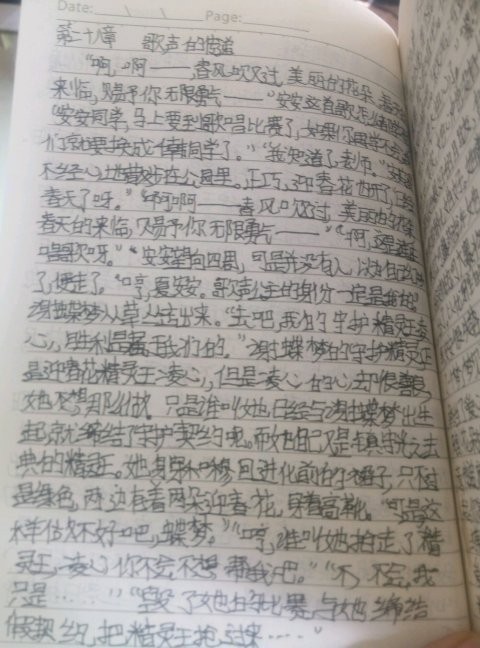 Date: Page:
第二十八章 歌声的街道
“啊,啊——,春风吹过,美丽的花朵,春天
来临,赐予你无限勇气——”安安这首歌怎么
“安安同学,马上要到歌唱比赛了,如果你再学不会
们就要换成俏同学了。”“我知道了,老师。”
不经心地散步在公园里。正巧,迎春花也开了,
春天了呀。”“啊啊——春风吹过,美丽的花朵
春天的来临,赐予你无限勇气——”“啊,这是谁在
唱歌呀。”安安望向四周,可是并没有人,以为自己
了,便走了。“哼,夏安安。歌声公主的身份一定是我的。”
谢蝶梦从草丛走出来。“去吧,我的守护精灵王凌
心,胜利是属于我们的。”谢蝶梦的守护精灵正
是迎春花精灵王凌心,但是凌心的心却很善良,
她不想那么做。只是谁叫她已经与谢蝶梦出生
起就缔结了守护契约呢。而她自己又是镇守光之古
典的精灵王。她身穿和修回进化前的裙子,只不过
是绿色,两边有着两朵迎春花,穿着高靴。“可是这
样似乎不好吧,蝶梦。”“哼,谁叫她抢走了精
灵王,凌心你不会不想帮我吧。”“不,不会,我
只是……”“毁了她的比赛,与她缔结
假契约,把精灵王抢过来……”